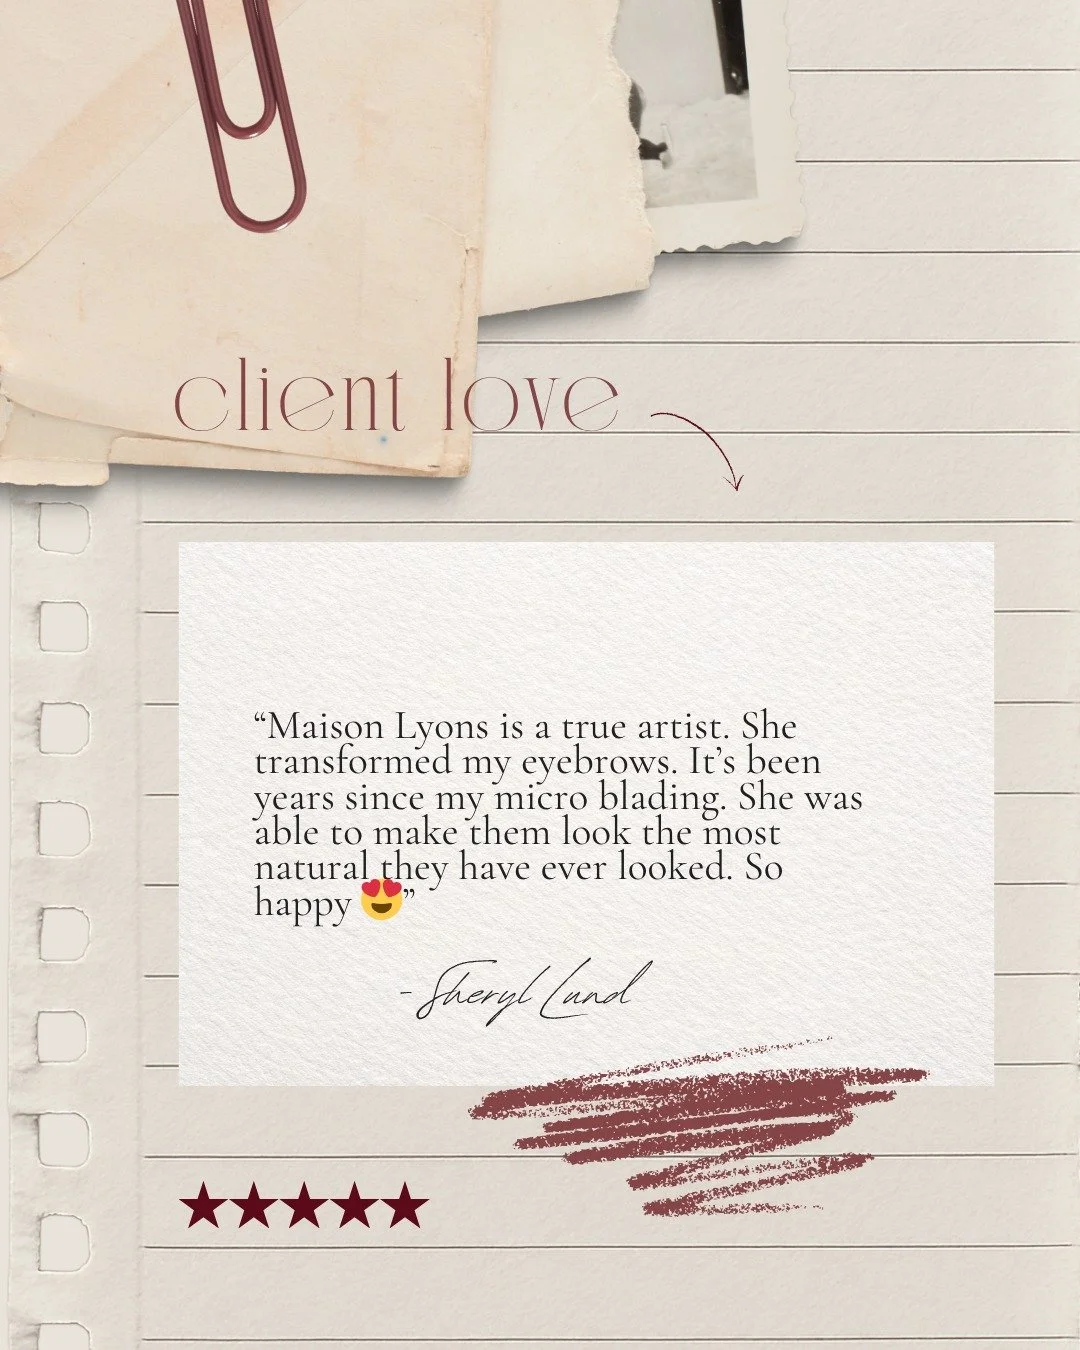 client love
“Maison Lyons is a true artist. She
transformed my eyebrows. It’s been
years since my micro blading. She was
able to make them look the most
natural they have ever looked. So
happy 😍”
-Sheryl Lund